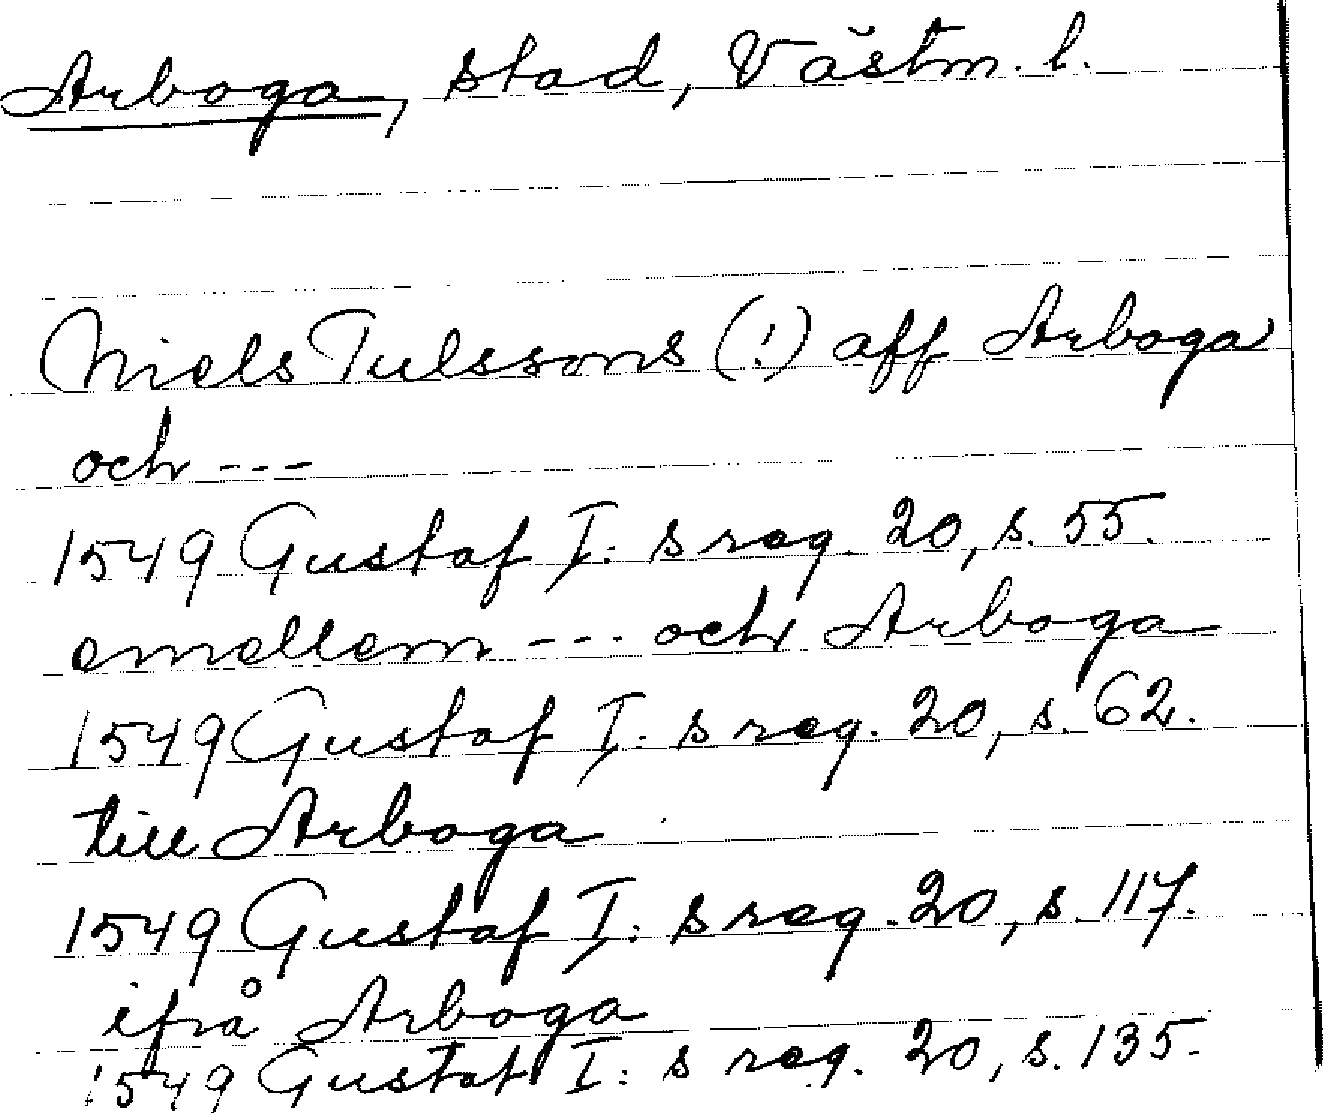 Arboga, stad, Västm. l.
Niels Tulssons (!) aff Arboga
och ---
1549 Gustaf I: s reg. 20, s. 55.
emellem --- och Arboga
1549 Gustaf I: s reg. 20, s. 62.
till Arboga
1549 Gustaf I: s reg. 20, s. 117.
ifrå Arboga
1549 Gustaf I: s reg. 20, s. 135.